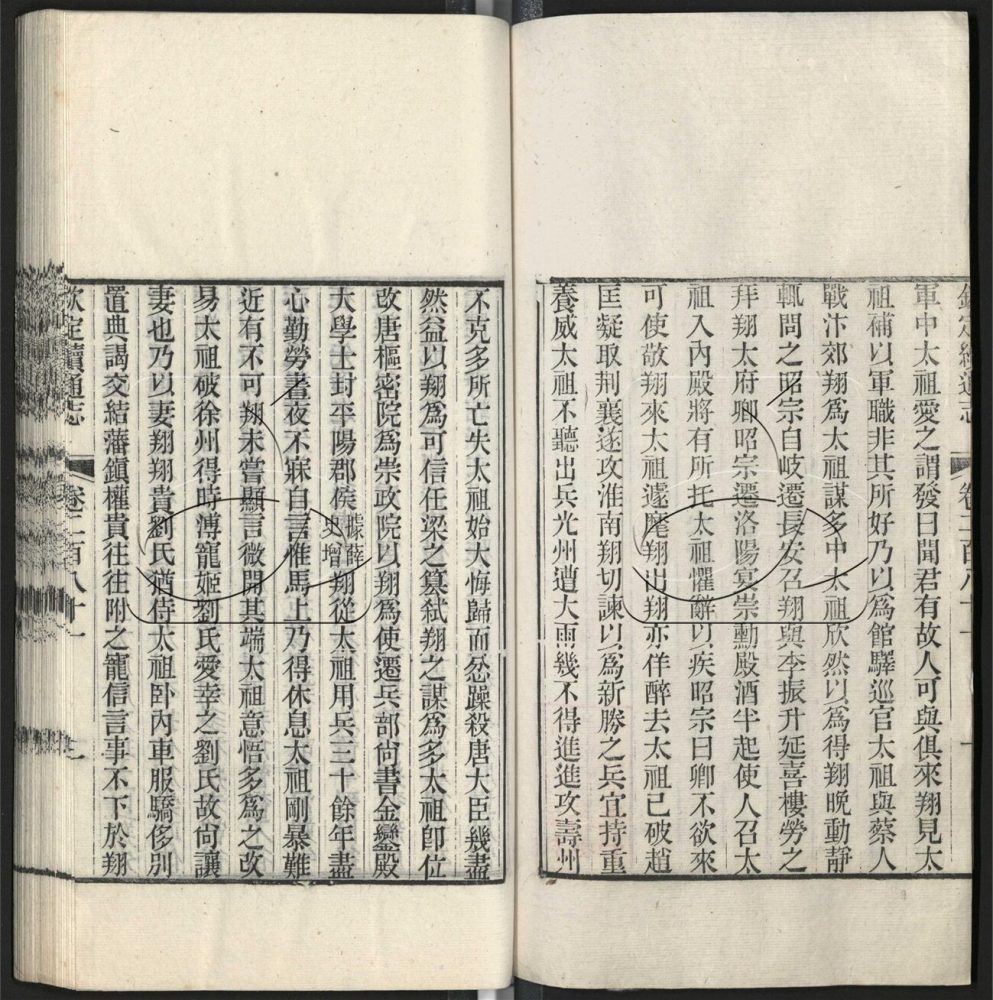 欽定續通志 卷二百八十一
軍中太祖愛之謂發曰聞君有故人可與俱來翔見太
祖補以軍職非其所好乃以爲館驛巡官太祖與蔡人
戰汴郊翔爲太祖謀多中太祖欣然以爲得翔晚動靜
輒問之昭宗自岐遷長安召翔與李振升延喜樓勞之
拜翔太府卿昭宗遷洛陽宴崇勳殿酒半起使人召太
祖入內殿將有所托太祖懼辭以疾昭宗曰卿不欲來
可使敬翔來太祖遽麾翔出翔亦佯醉去太祖已破趙
匡凝取荆襄遂攻淮南翔切諫以爲新勝之兵宜持重
養威太祖不聽出兵光州遭大雨幾不得進進攻壽州
不克多所亡失太祖始大悔歸而忿躁殺唐大臣幾盡
然益以翔爲可信任梁之篡弒翔之謀爲多太祖卽位
改唐樞密院爲崇政院以翔爲使遷兵部尙書金鑾殿
大學士封平陽郡侯據薛史增翔從太祖用兵三十餘年盡
心勤勞晝夜不寐自言惟馬上乃得休息太祖剛暴難
近有不可翔未嘗顯言微開其端太祖意悟多爲之改
易太祖破徐州得時溥寵姬劉氏愛幸之劉氏故尙讓
妻也乃以妻翔翔貴劉氏猶侍太祖卧內車服驕侈別
置典謁交結藩鎭權貴往往附之寵信言事不下於翔
欽定續通志 卷二百八十一